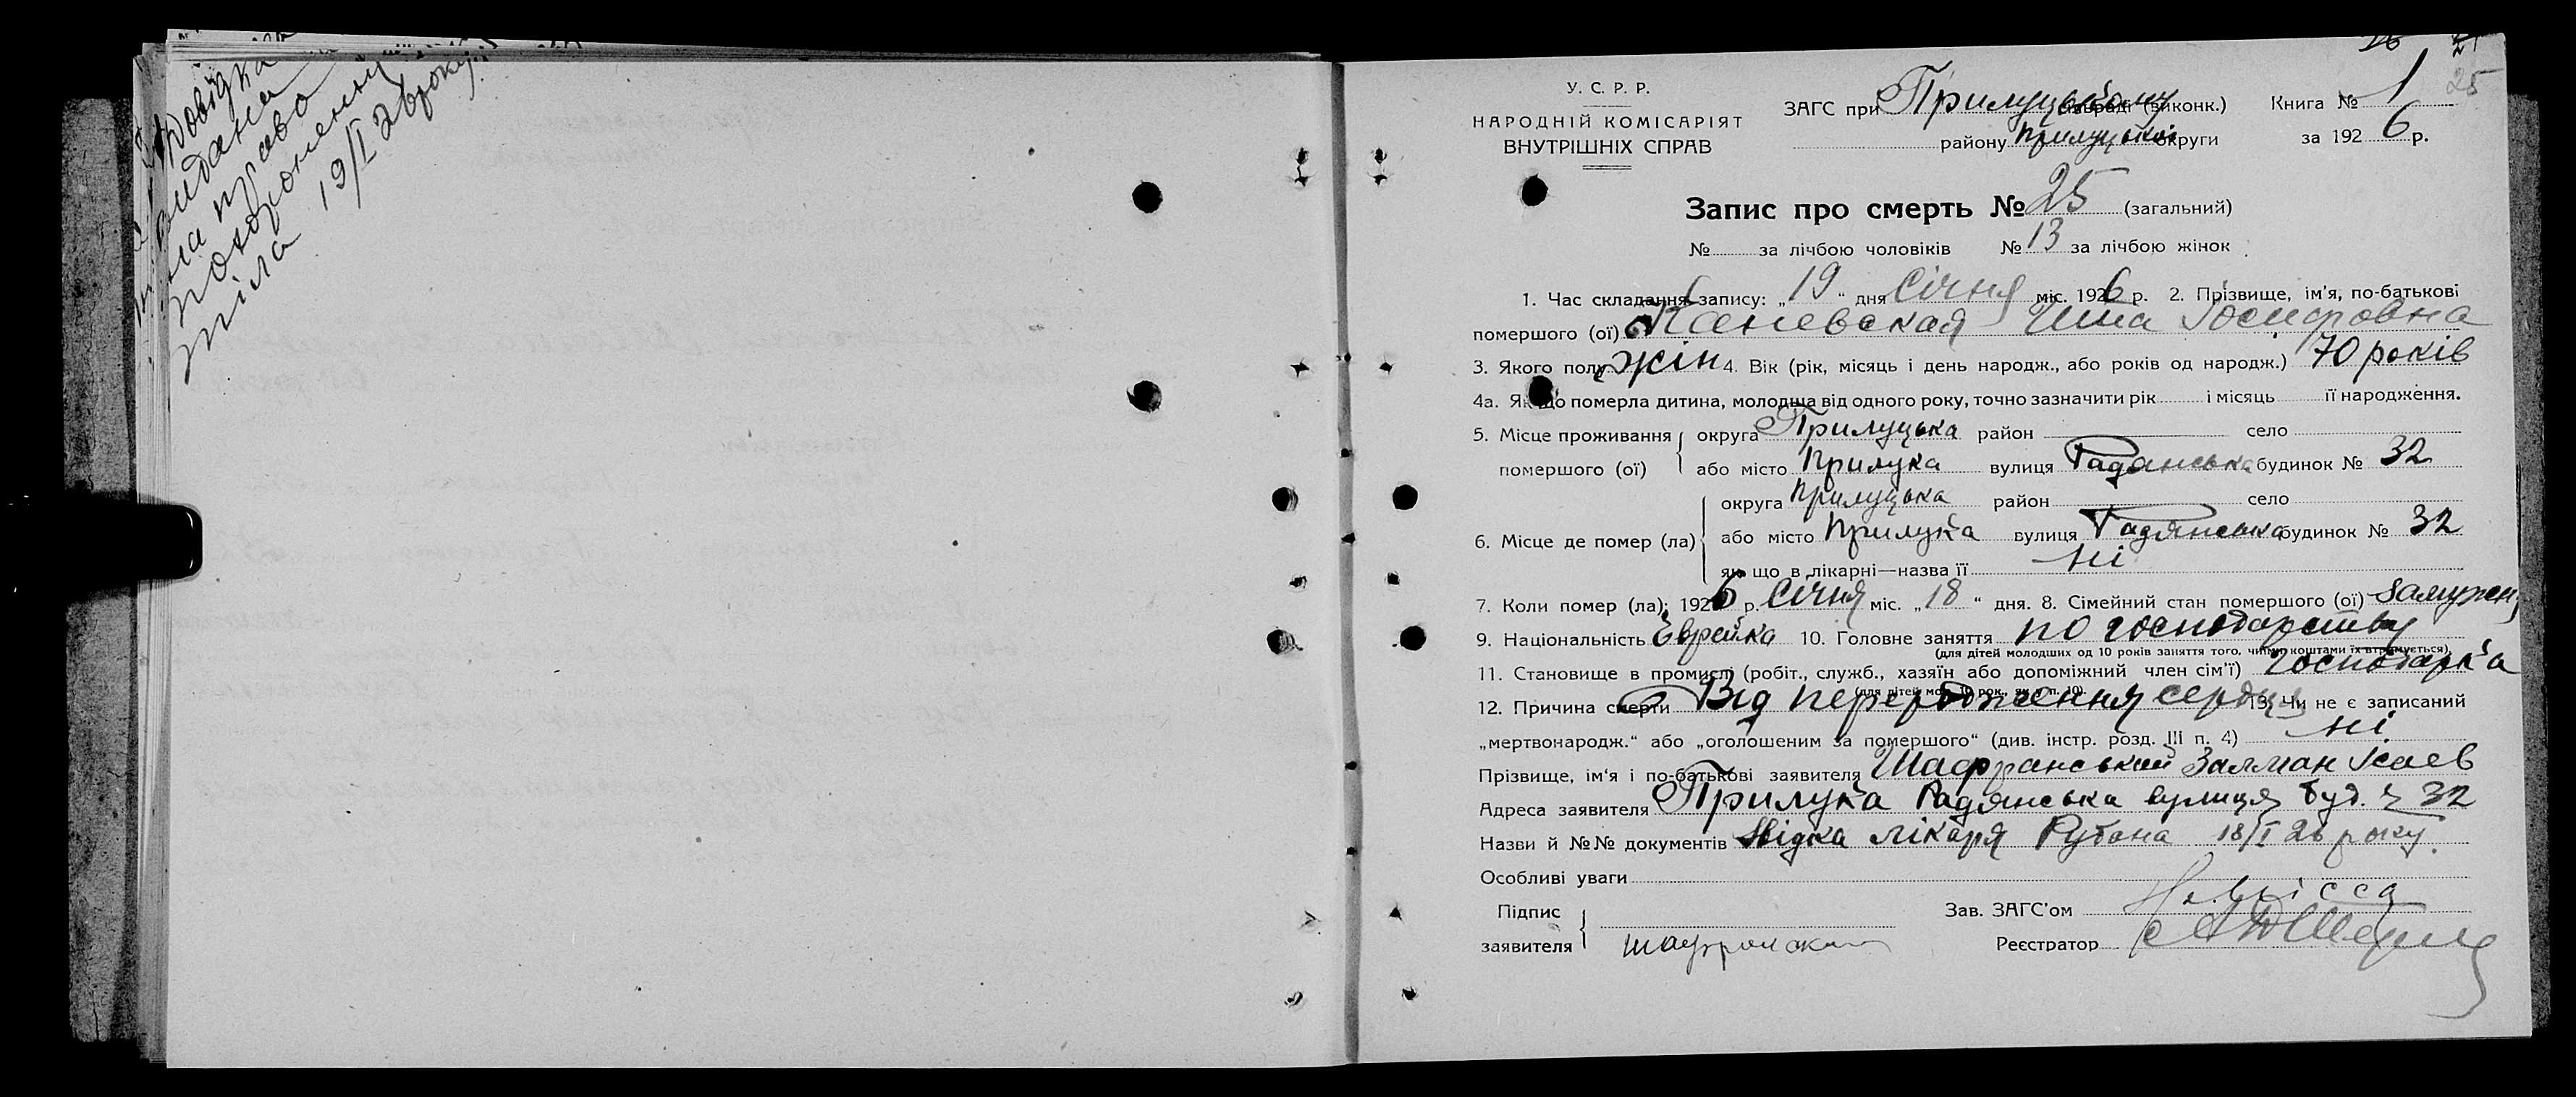 Довідка
видана
на право
похоронення
тіла 19/I 26 року.
25
У. С. Р. Р.
НАРОДНІЙ КОМІСАРІЯТ
ВНУТРІШНІХ СПРАВ
ЗАГС при Прилуцькому (виконк.) Книга № 1
району Прилуцької округи за 1926 р.
Запис про смерть № 25 (загальний)
№ за лічбою чоловіків № 13 за лічбою жінок
1. Час складання запису: „19“ дня Січня міс. 1926 р. 2. Прізвище, ім'я, по-батькові
помершого (ої) Каневская Йосифовна
3. Якого полу жін 4. Вік (рік, місяць і день народж., або років од народж.) 70 років
4а. Якщо померла дитина, молодща від одного року, точно зазначити рік і місяць її народження.
5. Місце проживання округа Прилуцька район село
помершого (ої) або місто Прилука вулиця Радянська будинок № 32
округа Прилуцька район село
6. Місце де помер (ла) або місто Прилука вулиця Радянська будинок № 32
як що в лікарні—назва її ні
7. Коли помер (ла): 1926 р. Січня міс. „18“ дня. 8. Сімейний стан помершого (ої) Замужня
9. Національність Єврейка 10. Головне заняття по господарству
(для дітей молодших од 10 років заняття того, чиїми коштами їх втримується)
11. Становище в промислі (робіт., служб., хазяїн або допоміжний член сім'ї) Господарка
(для дітей мол. 10 рок., як у п. 10)
12. Причина смерти Від переродження серця 13. Чи не є записаний
„мертвонародж.“ або „оголошеним за помершого“ (див. інстр. розд. III п. 4) ні
Прізвище, ім'я і по-батькові заявителя Шафранський Залман Ісаев
Адреса заявителя Прилука Радянська вулиця буд. ч 32
Назви й №№ документів Звідка лікаря 18/I 26 року.
Особливі уваги
Підпис Зав. ЗАГС'ом
заявителя Реєстратор